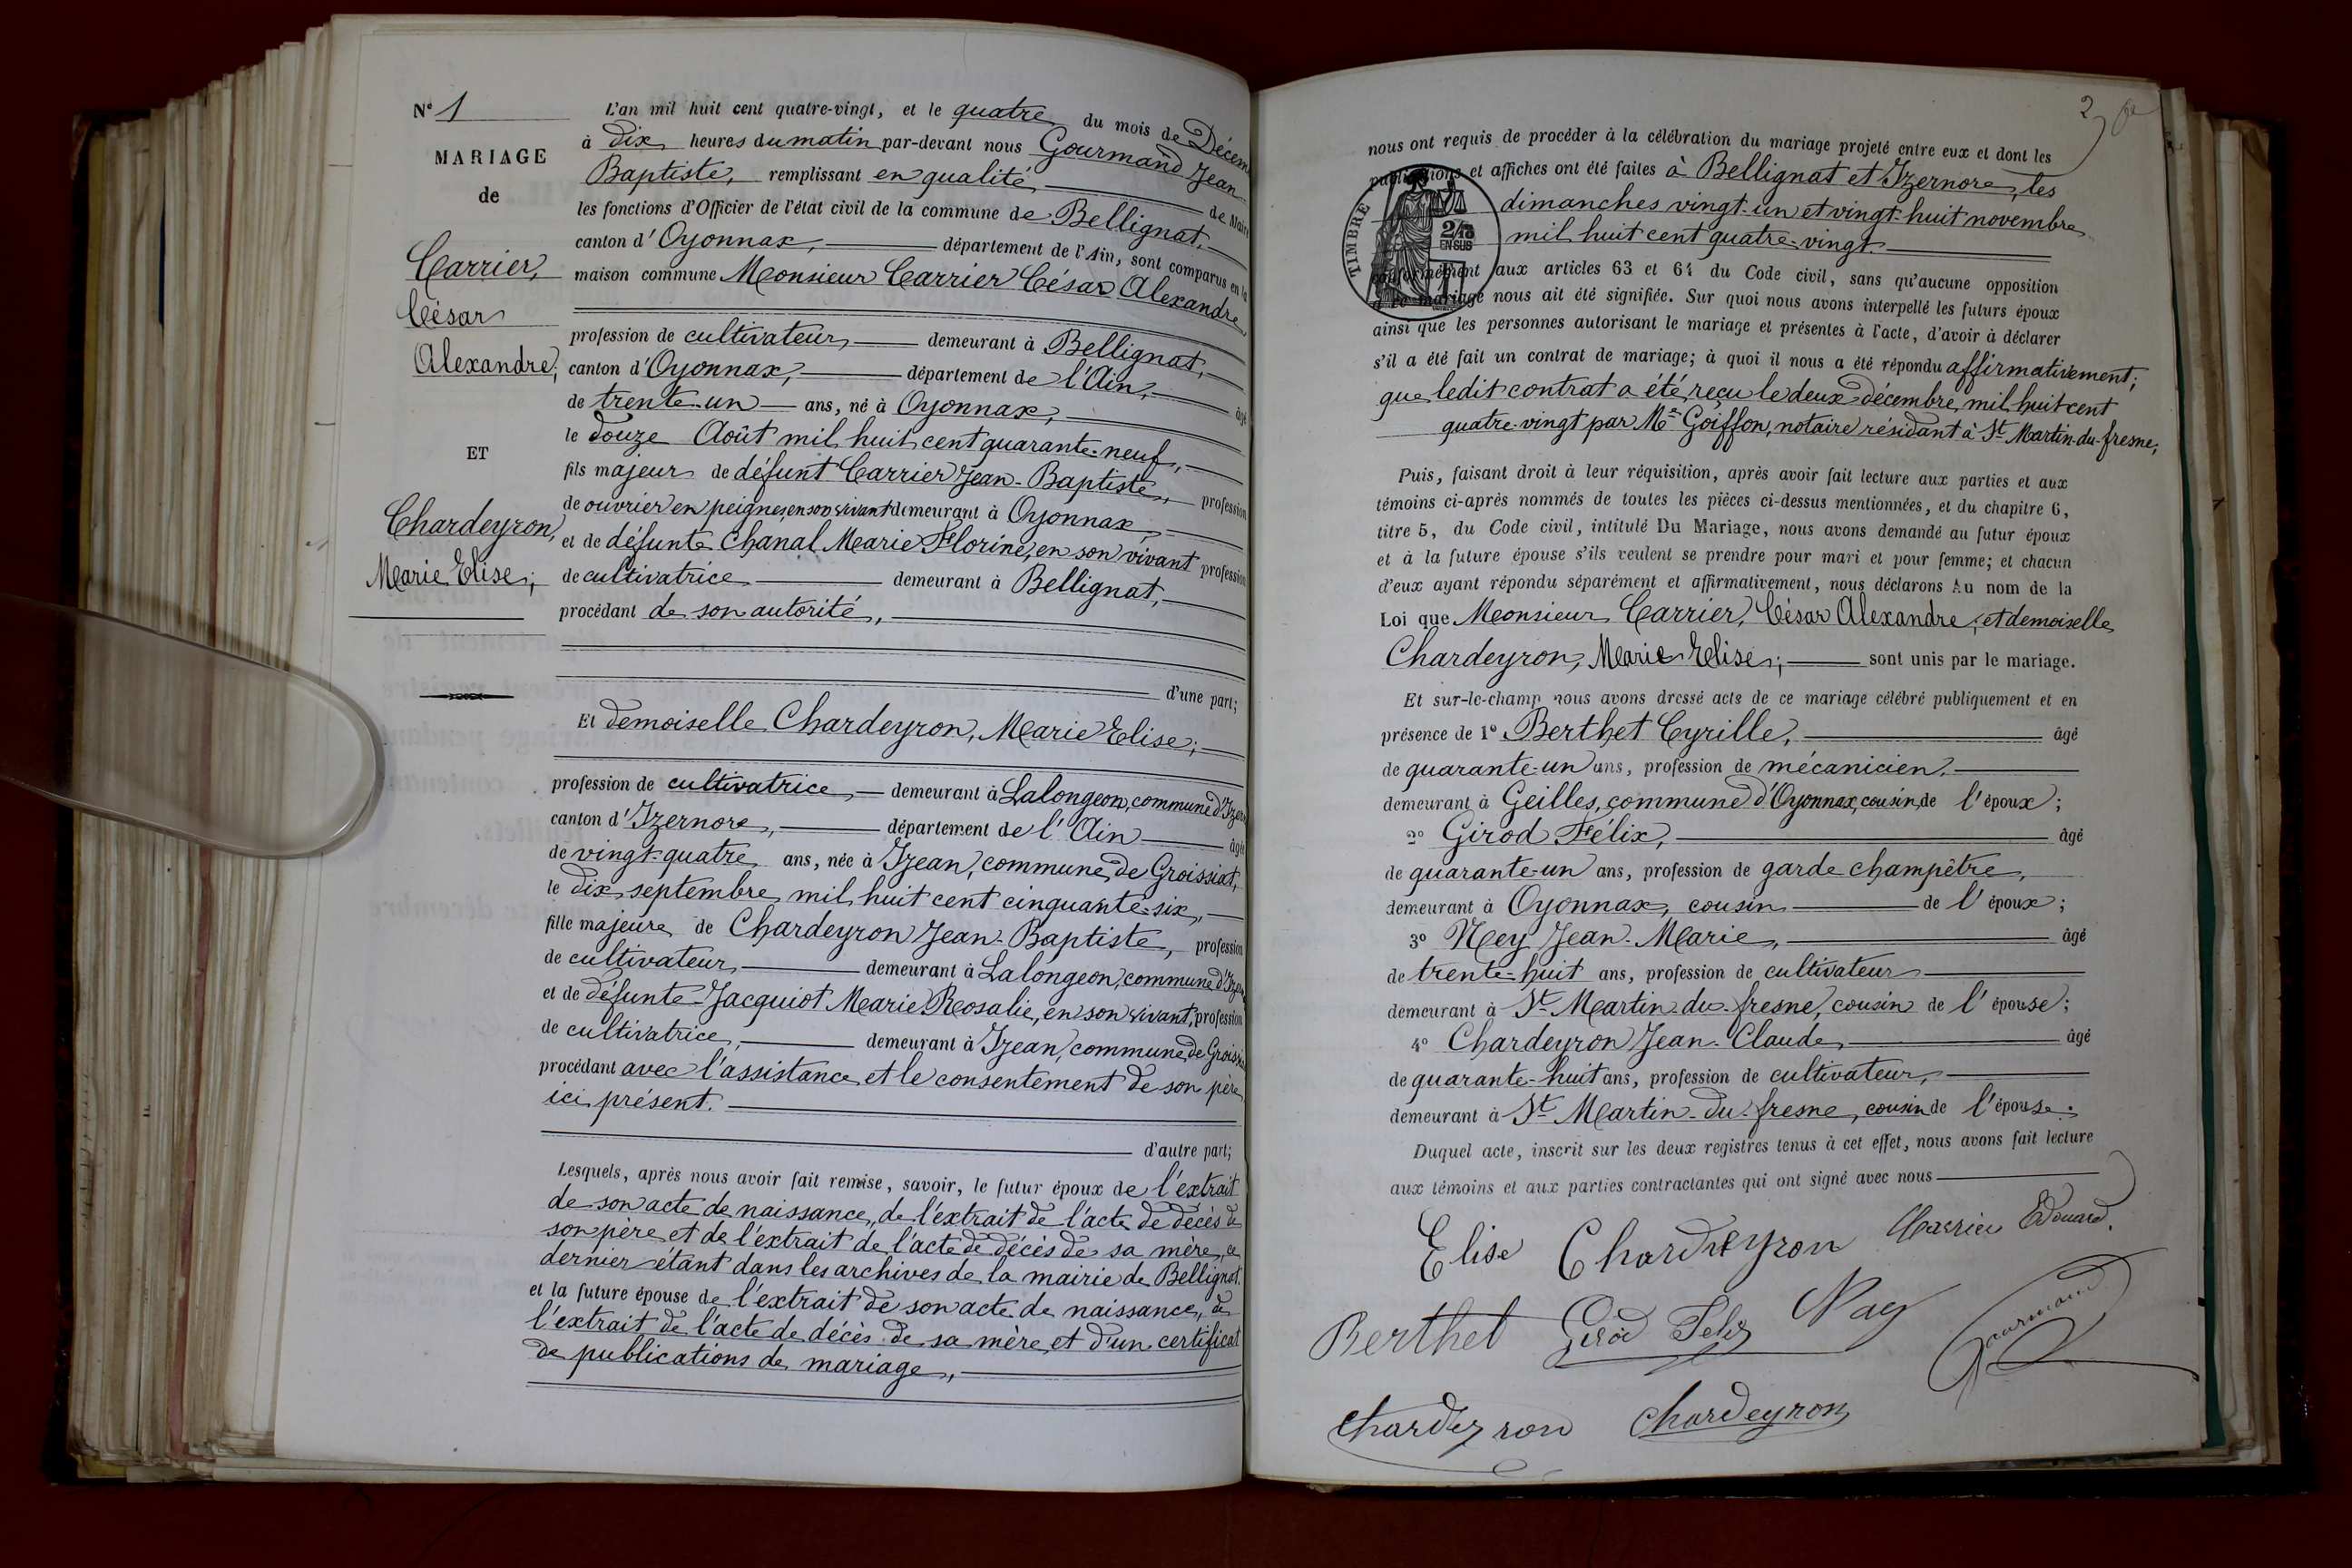 N° 1
MARIAGE
de
Carrier,
César
Alexandre;
ET
Chardeyron,
Marie Elise;
L'an mil huit cent quatre-vingt, et le quatre du mois de Décem
à Dix heures du matin par-devant nous Gourmand Jean
Baptiste, remplissant en qualité de Maire
les fonctions d'Officier de l'état civil de la commune de Bellignat,
canton d'Oyonnax, département de l'Ain, sont comparus en la
maison commune Monsieur Carrier César Alexandre
profession de cultivateur, demeurant à Bellignat,
canton d'Oyonnax, département de l'Ain, âgé
de trente-un ans, né à Oyonnax,
le douze Août mil huit cent quarante-neuf,
fils majeur de défunt Carrier Jean-Baptiste, profession
de ouvrier en peignes, en son vivant demeurant à Oyonnax,
et de défunte Chanal Marie Florine, en son vivant profession
de cultivatrice demeurant à Bellignat,
procédant de son autorité,
d'une part;
Et demoiselle Chardeyron, Marie Elise;
profession de cultivatrice, demeurant à Lalongeon, commune d'Izern
canton d'Izernore, département de l'Ain âgée
de vingt-quatre ans, née à Izean, commune de Groissiat,
le dix septembre mil huit cent cinquante-six,
fille majeure de Chardeyron Jean-Baptiste, profession
de cultivateur, demeurant à Lalongeon, commune d'Izern
et de défunte Jacquiot Marie Rosalie, en son vivant, profession
de cultivatrice, demeurant à Izean, commune de Groissia
procédant avec l'assistance et le consentement de son père
ici présent.
d'autre part;
Lesquels, après nous avoir fait remise, savoir, le futur époux de l'extrait
de son acte de naissance, de l'extrait de l'acte de décès de
son père et de l'extrait de l'acte de décès de sa mère, ce
dernier étant dans les archives de la mairie de Bellignat.
et la future épouse de l'extrait de son acte de naissance, de
l'extrait de l'acte de décès de sa mère et d'un certificat
de publications de mariage,
2
nous ont requis de procéder à la célébration du mariage projeté entre eux et dont les
publications et affiches ont été faites à Bellignat et Izernore, les
dimanches vingt-un et vingt-huit novembre
mil huit cent quatre-vingt.
TIMBRE
2/10
EN SUS
conformément aux articles 63 et 64 du Code civil, sans qu'aucune opposition
à ce mariage nous ait été signifiée. Sur quoi nous avons interpellé les futurs époux
ainsi que les personnes autorisant le mariage et présentes à l'acte, d'avoir à déclarer
s'il a été fait un contrat de mariage; à quoi il nous a été répondu affirmativement;
que ledit contrat a été reçu le deux décembre mil huit cent
quatre-vingt par Me Goiffon, notaire résidant à St Martin-du-fresne,
Puis, faisant droit à leur réquisition, après avoir fait lecture aux parties et aux
témoins ci-après nommés de toutes les pièces ci-dessus mentionnées, et du chapitre 6,
titre 5, du Code civil, intitulé Du Mariage, nous avons demandé au futur époux
et à la future épouse s'ils veulent se prendre pour mari et pour femme; et chacun
d'eux ayant répondu séparément et affirmativement, nous déclarons Au nom de la
Loi que Monsieur Carrier, César Alexandre, et demoiselle
Chardeyron, Marie Elise; sont unis par le mariage.
Et sur-le-champ nous avons dressé acte de ce mariage célébré publiquement et en
présence de 1° Berthet Cyrille, âgé
de quarante-un ans, profession de mécanicien,
demeurant à Geilles, commune d'Oyonnax, cousin de l'époux;
2° Girod Félix, âgé
de quarante-un ans, profession de garde champêtre,
demeurant à Oyonnax, cousin de l'époux;
3° Ney Jean-Marie, âgé
de trente-huit ans, profession de cultivateur
demeurant à St Martin-du-fresne, cousin de l'épouse;
4° Chardeyron Jean-Claude, âgé
de quarante-huit ans, profession de cultivateur,
demeurant à St Martin-du-fresne, cousin de l'épouse.
Duquel acte, inscrit sur les deux registres tenus à cet effet, nous avons fait lecture
aux témoins et aux parties contractantes qui ont signé avec nous
Elise Chardeyron Carrier Edouard.
Berthet Girod Felix Ney Gourmand
Chardeyron Chardeyron